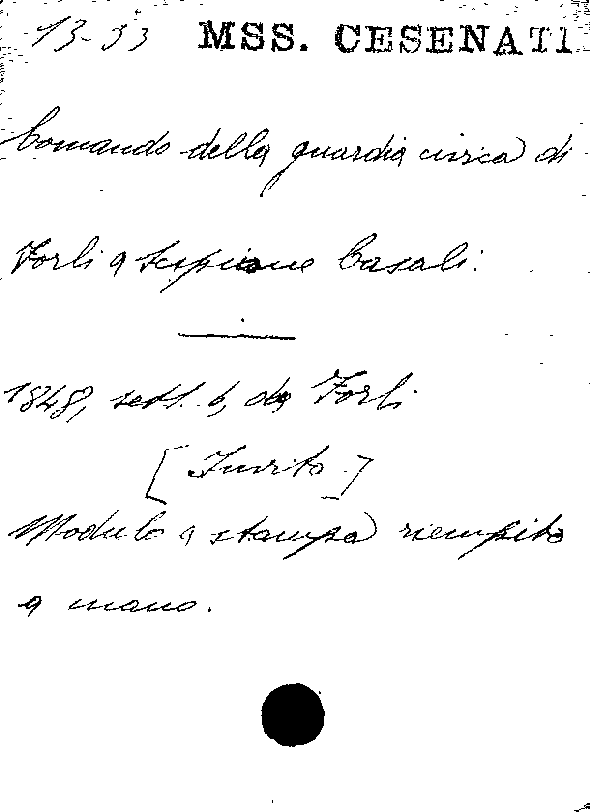 13-33 MSS. CESENATI
Comando della guardia civica di
Forlì a Scipione Casali.
1848, sett. 6, da Forlì
[Invito]
Modulo a stampa riempito
a mano.